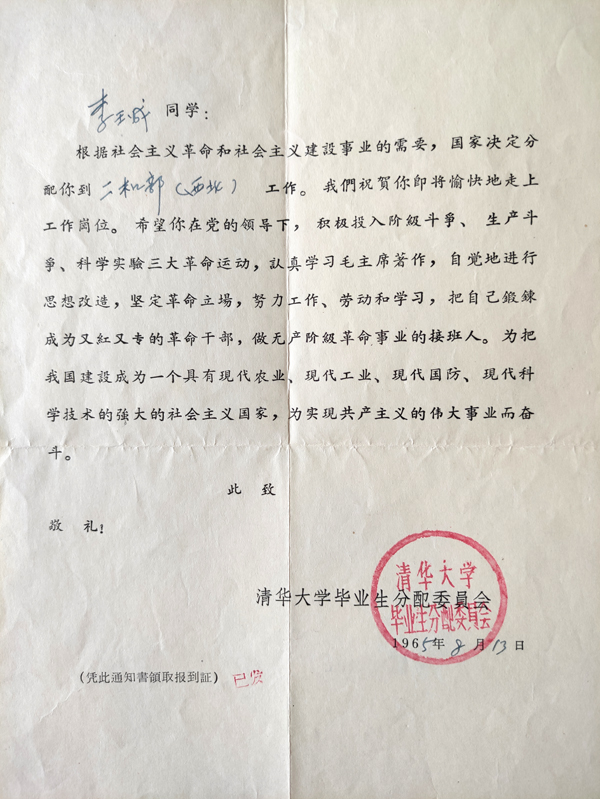 李玉成 同学：
根据社会主义革命和社会主义建設事业的需要，国家决定分
配你到 二机部（西北） 工作。我們祝賀你即将愉快地走上
工作崗位。希望你在党的领导下，积极投入阶級斗爭、生产斗
爭、科学实驗三大革命运动，认真学习毛主席著作，自觉地进行
思想改造，坚定革命立場，努力工作、劳动和学习，把自己鍛鍊
成为又紅又专的革命干部，做无产阶級革命事业的接班人。为把
我国建設成为一个具有现代农业、现代工业、现代国防、现代科
学技术的强大的社会主义国家，为实现共产主义的伟大事业而奋
斗。
此 致
敬 礼！
清华大学毕业生分配委員会
清华大学
毕业生分配委員会
1965年8月13日
（凭此通知書領取报到証） 已发